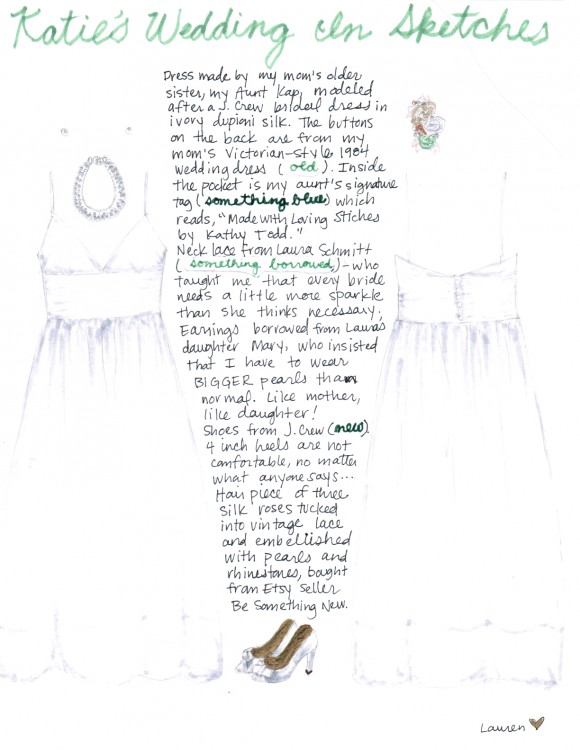 Katie's Wedding In Sketches
Dress made by my mom's older
sister, my Aunt Kap, modeled
after a J. Crew bridal dress in
ivory dupioni silk. The buttons
on the back are from my
mom's Victorian-style 1984
wedding dress (old). Inside
the pocket is my aunt's signature
tag (something blue) which
reads, "Made with Loving Stiches
by Kathy Todd."
Neck lace from Laura Schmitt
(something borrowed)-who
taught me that every bride
needs a little more sparkle
than she thinks necessary;
Earrings borrowed from Laura's
daughter Mary, who insisted
that I have to wear
BIGGER pearls than
normal. Like mother,
like daughter!
Shoes from J. Crew (new).
4 inch heels are not
comfortable, no matter
what anyone says...
Hair piece of three
silk roses tucked
into vintage lace
and embellished
with pearls and
rhinestones, bought
from Etsy seller
Be Something New.
Lauren